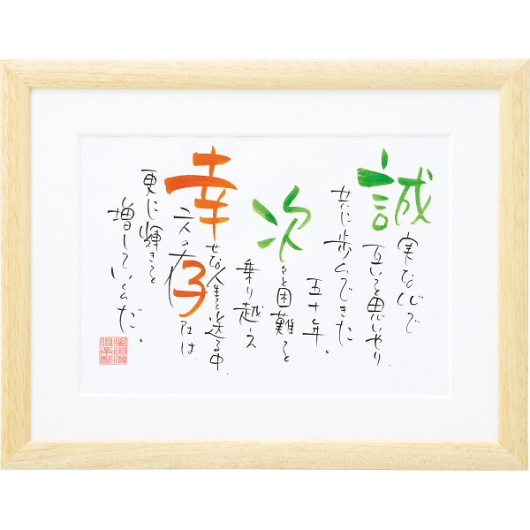 誠実な心で
互いを思いやり
共に歩んできた
五十年。
次々と困難を
乗り越え
幸せな人生を送る中、
二人の存在は、
更に輝きを
増していくんだ。